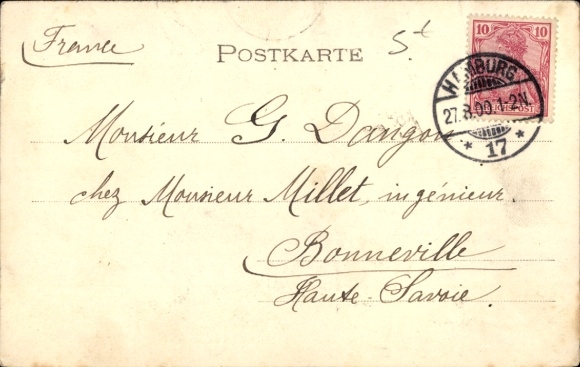 France
POSTKARTE
St
10 10
HAMBURG
27.8.00.1-2N.
* 17 *
Monsieur G. Dangon
chez Monsieur Millet, ingénieur.
Bonneville
Haute-Savoie.